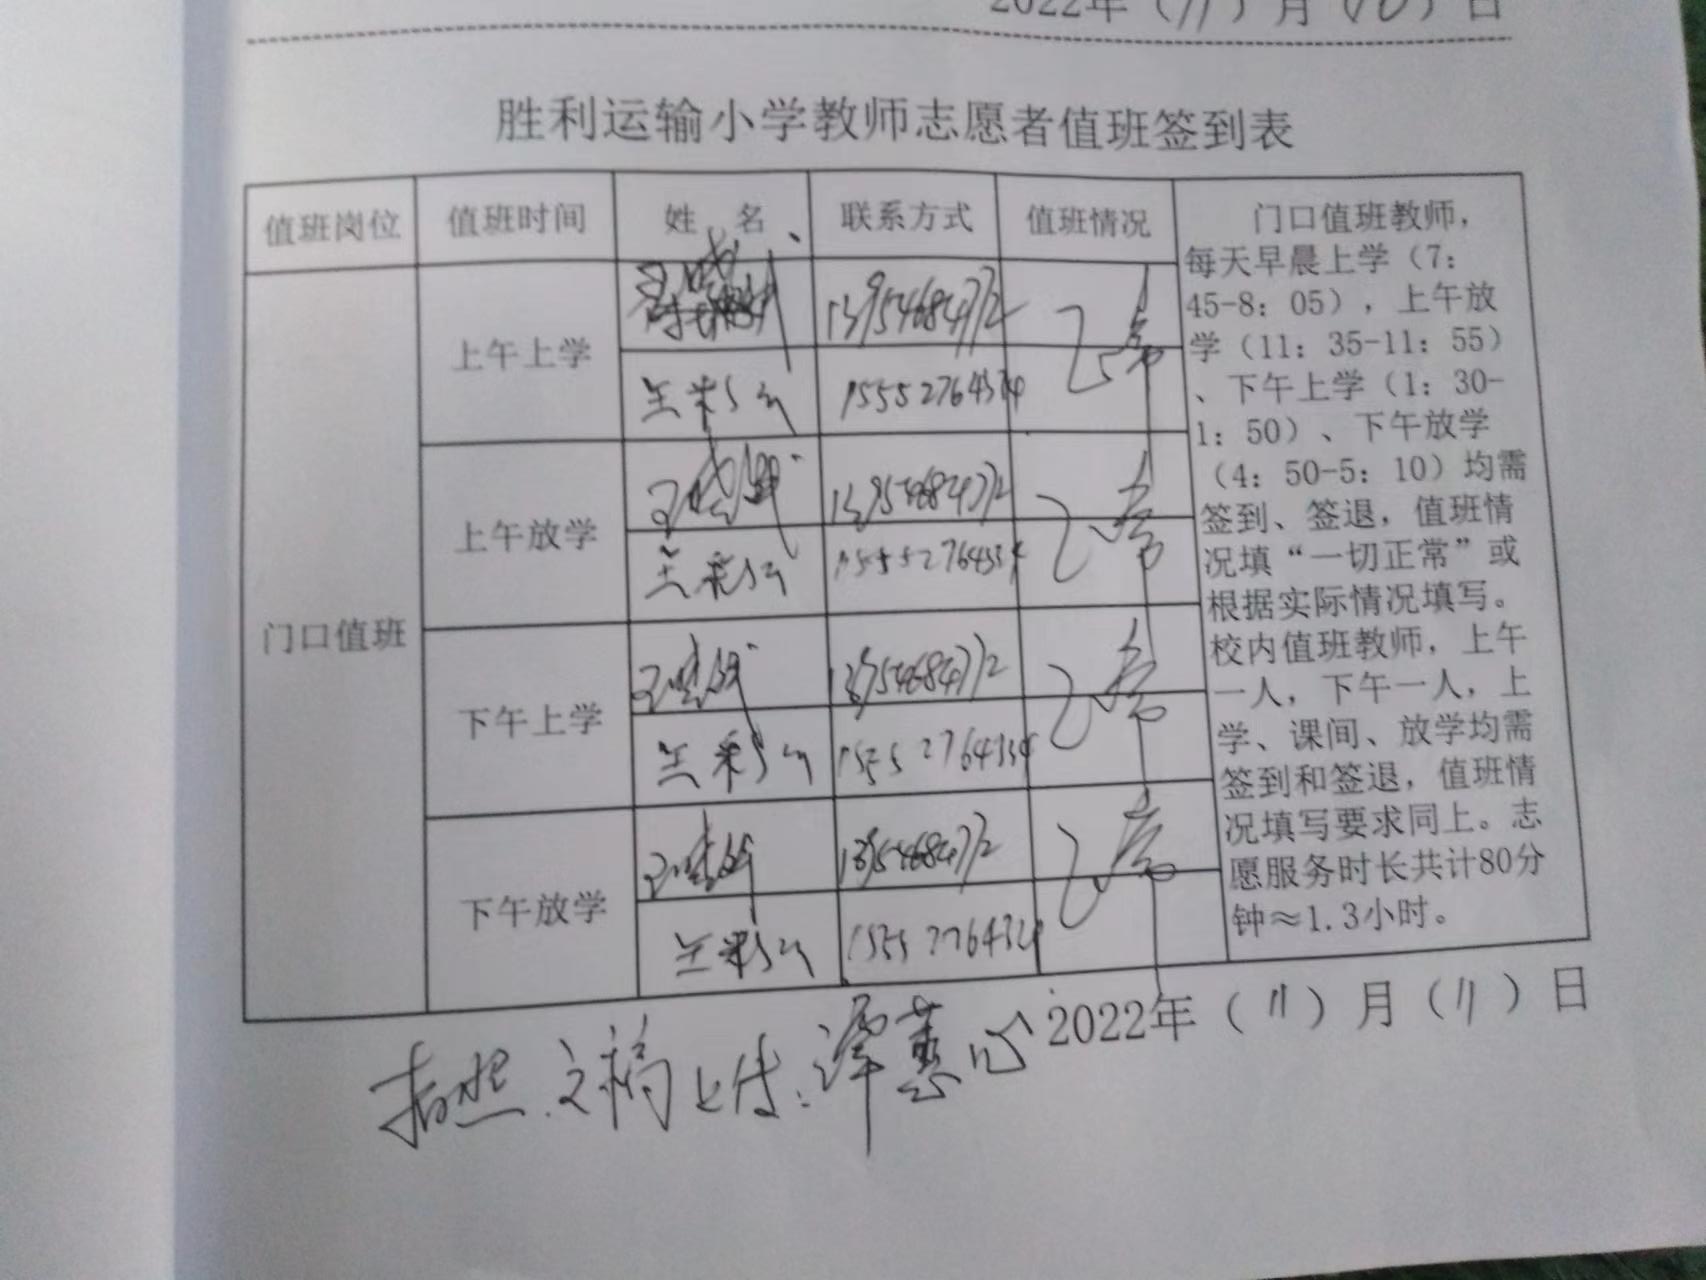 2022年（11）月（10）日
胜利运输小学教师志愿者值班签到表
值班岗位 值班时间 姓 名 联系方式 值班情况
门口值班教师，
每天早晨上学（7：
45-8：05），上午放
学（11：35-11：55）
、下午上学（1：30-
1：50）、下午放学
（4：50-5：10）均需
签到、签退，值班情
况填“一切正常”或
根据实际情况填写。
校内值班教师，上午
一人，下午一人，上
学、课间、放学均需
签到和签退，值班情
况填写要求同上。志
愿服务时长共计80分
钟≈1.3小时。
门口值班
上午上学
13954684772
15552764334
上午放学
13954684772
15552764334
下午上学
13954684772
15552764334
下午放学
13954684772
15552764334
2022年（11）月（11）日
拍照.文稿上传：谭蕙心